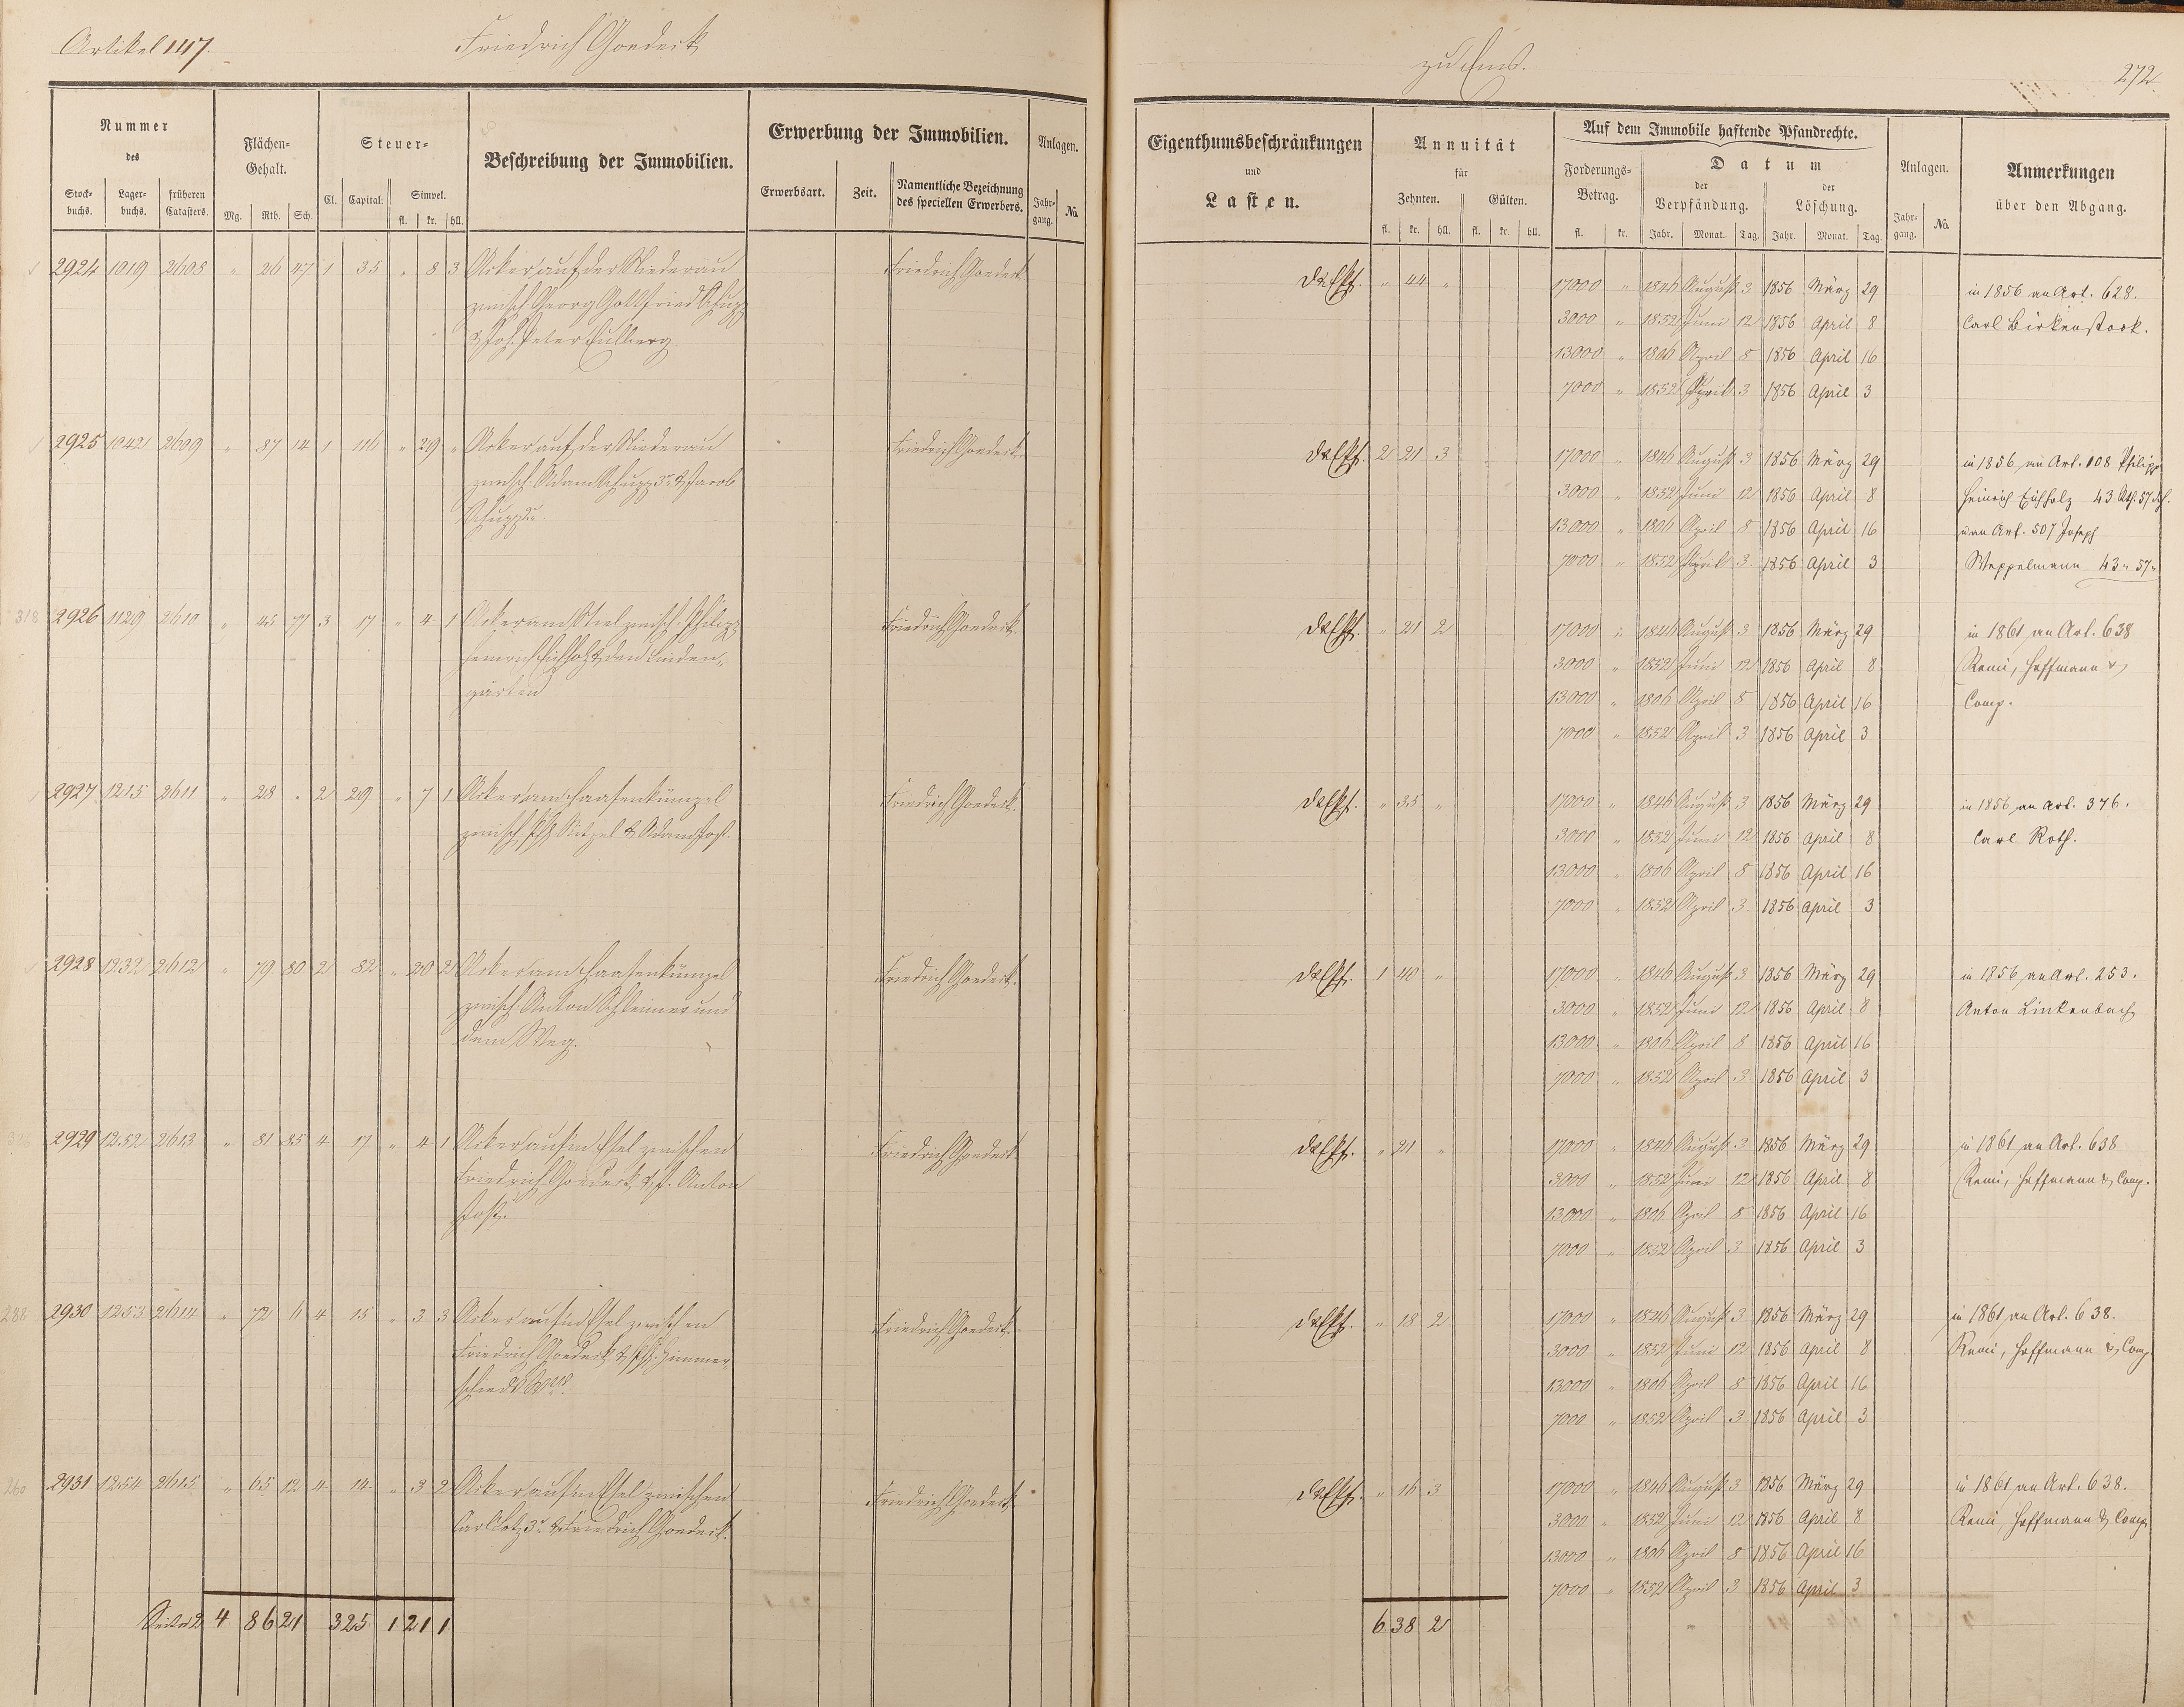 Artikel 1147.
Friedrich Goedeck
zu Ems.
272
Nummer des
Stockbuchs. Lagerbuchs. früheren Catasters.
Flächen-Gehalt.
Mg. Rth. Sch.
Steuer-
Cl. Capital. Simpel.
fl. kr. hll.
Beschreibung der Immobilien.
Erwerbung der Immobilien.
Erwerbsart. Zeit. Namentliche Bezeichnung des speciellen Erwerbers.
Anlagen.
Jahrgang. No.
Eigenthumsbeschränkungen und Lasten.
Annuität für
Zehnten. Gülten.
fl. kr. hll. fl. kr. hll.
Auf dem Immobile haftende Pfandrechte.
Forderungs-Betrag. Datum
der Verpfändung. der Löschung.
fl. kr. Jahr. Monat. Tag. Jahr. Monat. Tag.
Anlagen.
Jahrgang. No.
Anmerkungen über den Abgang.
2924 1019 2608 " 26 47 1 35 " 8 3 Acker auf der Niederau Friedrich Goedeck
zwisch. Georg Gottfried Schupp
& Joh. Peter Eulberg.
" 44 " 17000 " 1846 August 3 1856 März 29 in 1856 an Art. 628.
3000 " 1852 Juni 12 1856 April 8 Carl Birkenstock.
13000 " 1806 April 8 1856 April 16
7000 " 1852 April 3 1856 April 3
2925 1042 2609 " 87 14 1 116 " 29 " Acker auf der Niederau Friedrich Goedeck
zwisch. Adam Schupp 3r & Jacob
Schupp 2r.
2 21 3 17000 " 1846 August 3 1856 März 29 in 1856 an Art. 108 Philipp
3000 " 1852 Juni 12 1856 April 8 Heinrich Eichholz 43 Rth 57 Sch.
13000 " 1806 April 8 1856 April 16 u an Art. 507 Joseph
7000 " 1852 April 3 1856 April 3 Weppelmann 43 " 57 "
318 2926 1129 2610 " 45 77 3 17 " 4 1 Acker am Stiel zwisch. Philipp Friedrich Goedeck
Heinrich Eichholz & den Linden-
gärten
" 21 2 17000 " 1846 August 3 1856 März 29 in 1861 an Art. 638
3000 " 1852 Juni 12 1856 April 8 Remi, Hoffmann &
13000 " 1806 April 8 1856 April 16 Comp.
7000 " 1852 April 3 1856 April 3
2927 1215 2611 " 28 " 2 29 " 7 1 Acker am Haasenkümpel Friedrich Goedeck.
zwisch. & Adam Jost.
" 33 " 17000 " 1846 August 3 1856 März 29 in 1856 an Art. 376.
3000 " 1852 Juni 12 1856 April 8 Carl Roth.
13000 " 1806 April 8 1856 April 16
7000 " 1852 April 3 1856 April 3
2928 1232 2612 " 79 80 2 82 " 20 2 Acker am Haasenkümpel Friedrich Goedeck.
zwisch. Anton Schleimer und
dem Weg.
1 40 " 17000 " 1846 August 3 1856 März 29 in 1856 an Art. 253.
3000 " 1852 Juni 12 1856 April 8 Anton Linkenbach
13000 " 1806 April 8 1856 April 16
7000 " 1852 April 3 1856 April 3
2929 1252 2613 " 81 85 4 17 " 4 1 Acker auf'm Esel zwischen Friedrich Goedeck
Friedrich Goedeck & Anton
Jost.
" 21 " 17000 " 1846 August 3 1856 März 29 in 1861 an Art. 638
3000 " 1852 Juni 12 1856 April 8 Remi, Hoffmann & Comp.
13000 " 1806 April 8 1856 April 16
7000 " 1852 April 3 1856 April 3
288 2930 1253 2614 " 72 6 4 15 " 3 3 Acker auf'm Esel zwischen Friedrich Goedeck.
Friedrich Goedeck & Zimmer-
schied's
" 18 2 17000 " 1846 August 3 1856 März 29 in 1861 an Art. 638.
3000 " 1852 Juni 12 1856 April 8 Remi, Hoffmann & Comp
13000 " 1806 April 8 1856 April 16
7000 " 1852 April 3 1856 April 3
260 2931 1254 2615 " 65 12 4 14 " 3 2 Acker auf'm Esel zwischen Friedrich Goedeck.
Carl 3r & Friedrich Goedeck.
" 16 3 17000 " 1846 August 3 1856 März 29 in 1861 an Art. 638.
3000 " 1852 Juni 12 1856 April 8 Remi, Hoffmann & Comp
13000 " 1806 April 8 1856 April 16
7000 " 1852 April 3 1856 April 3
Seite 2 4 86 21 325 1 21 1
6 38 2